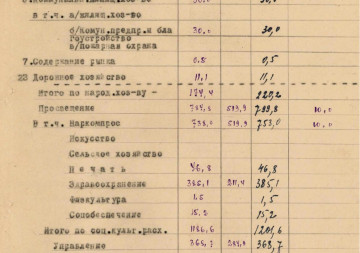 в т.ч. а/жилищ.хоз-во
б/комун.предпр.и бла 30,0 30,0
гоустройство
в/пожарная охрана
7.Содержание рынка 0.5 0,5
23 Дорожное хозяйство 11,1 11,1
Итого по народ.хоз-ву - 174,4 220,2
Просвещение 799,8
В т.ч. Наркомпрос 753,0
Искусство
Сельское хозяйство
Печать 46,8 46,8
Здравоохранение 385,1 385,1
Физкультура 1.5 1,5
Собобеспечение 15.2 15,2
Итого по соц.культ.расх. 1201,6
Управление 368,7